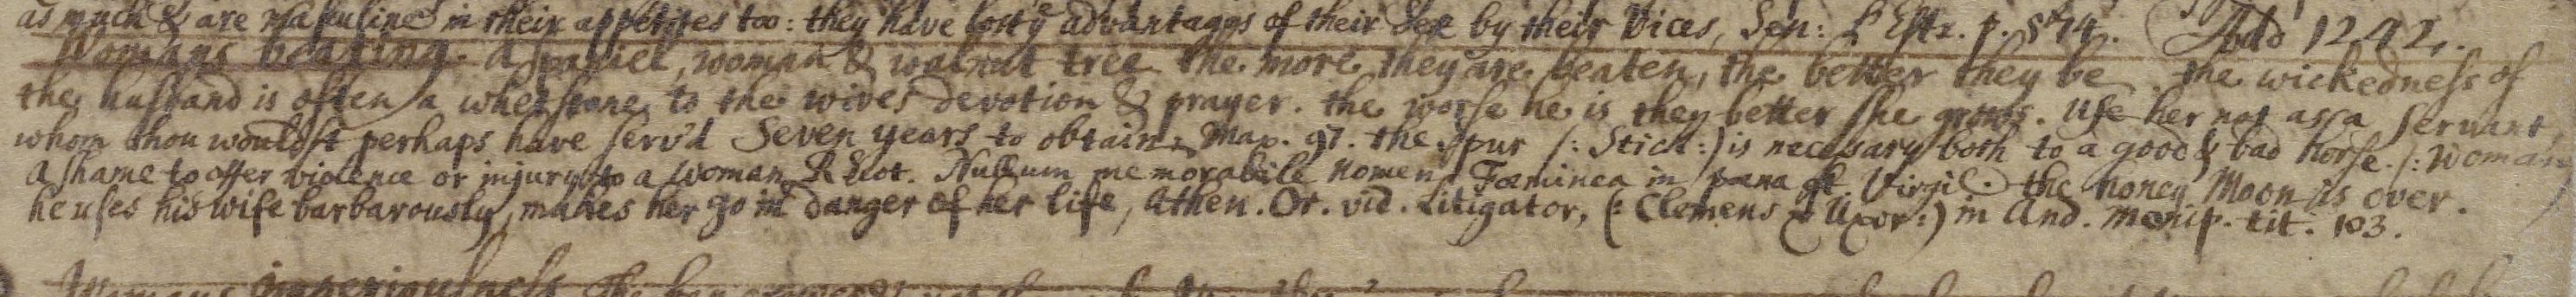 as much & are masculine in their appetites too: they have lost yᵉ advantages of their Sex by their Vices, Sen: L'Estr. p. 874. Add 1242.
Womans beating. a spaniel, woman & walnut tree the more they are beaten, the better they be. the wickedness of
the husband is often a whetstone to the wives devotion & prayer. the worse he is they better she grows. Use her not as a servant,
whom thou wouldst perhaps have serv'd Seven years to obtain, Map. 97. the spur /: Stick :/ is necessary both to a good & bad horse. /: Woman
a shame to offer violence or injury to a Woman Nullum memorabile nomen Fæminea in pæna est. Virgil. the honey Moon is over.
he uses his wife barbarously, makes her go in danger of her life, Athen. Or. vid. Litigator, (: Clemens & Uxor :) in And. Menip. tit. 103.
Womans imperiousness The